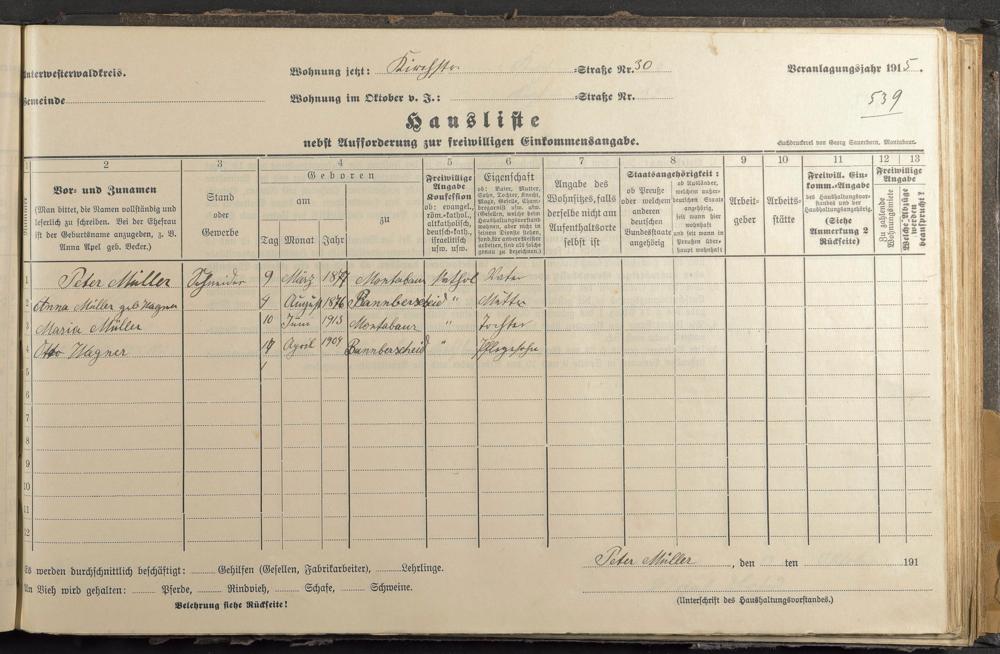 Unterwesterwaldkreis. Wohnung jetzt: Kirchstr. =Straße Nr. 30 Veranlagungsjahr 1915.
Gemeinde Wohnung im Oktober v. J.: =Straße Nr. 539
Hausliste
nebst Aufforderung zur freiwilligen Einkommensangabe.
Buchdruckerei von Georg Sauerborn, Montabaur.
1 2 3 4 5 6 7 8 9 10 11 12 13
Vor- und Zunamen
(Man bittet, die Namen vollständig und
leserlich zu schreiben. Bei der Ehefrau
ist der Geburtsname anzugeben, z. B.
Anna Apel geb. Becker.)
Stand
oder
Gewerbe
Geboren
am
zu
Tag Monat Jahr
Freiwillige
Angabe
Konfession
ob: evangel.,
röm.-kathol.,
altkatholisch,
deutsch-kath.,
israelitisch
usw. usw.
Eigenschaft
ob: Vater, Mutter,
Sohn, Tochter, Knecht,
Magd, Geselle, Cham-
bregarnist usw. usw.
(Gesellen, welche beim
Haushaltungsvorstand
wohnen, aber nicht in
seinen Diensten stehen,
sond. für anderer Meister
arbeiten, sind als solche
genau zu bezeichnen.)
Angabe des
Wohnsitzes, falls
derselbe nicht am
Aufenthaltsorte
selbst ist
Staatsangehörigkeit:
ob Preuße
oder welchem
anderen
deutschen
Bundesstaate
angehörig
ob Ausländer,
welchem außer-
deutschen Staate
angehörig,
seit wann hier
wohnhaft
und
seit wann in
Preußen über-
haupt wohnhaft
Arbeit-
geber
Arbeits-
stätte
Freiwill. Ein-
komm.-Angabe
des Haushaltungsvor-
standes und der
Haushaltungsangehörig.
(Siehe
Anmerkung 2
Rückseite)
Freiwillige
Angabe
Zu zahlende
Wohnungsmiete
Welche Abzüge
werden
beansprucht?
1 Peter Müller Schneider 9 März 1874 Montabaur Kathol Vater
2 Anna Müller geb Wagner 9 August 1876 Bannberscheid " Mutter
3 Maria Müller 10 Juni 1913 Montabaur " Tochter
4 Otto Wagner 17 April 1904 Bannberscheid " Pflegesohn
5
6
7
8
9
10
11
12
Es werden durchschnittlich beschäftigt: Gehilfen (Gesellen, Fabrikarbeiter), Lehrlinge.
An Vieh wird gehalten: Pferde, Rindvieh, Schafe, Schweine.
Belehrung siehe Rückseite!
Peter Müller, den ten 191
(Unterschrift des Haushaltungsvorstandes.)